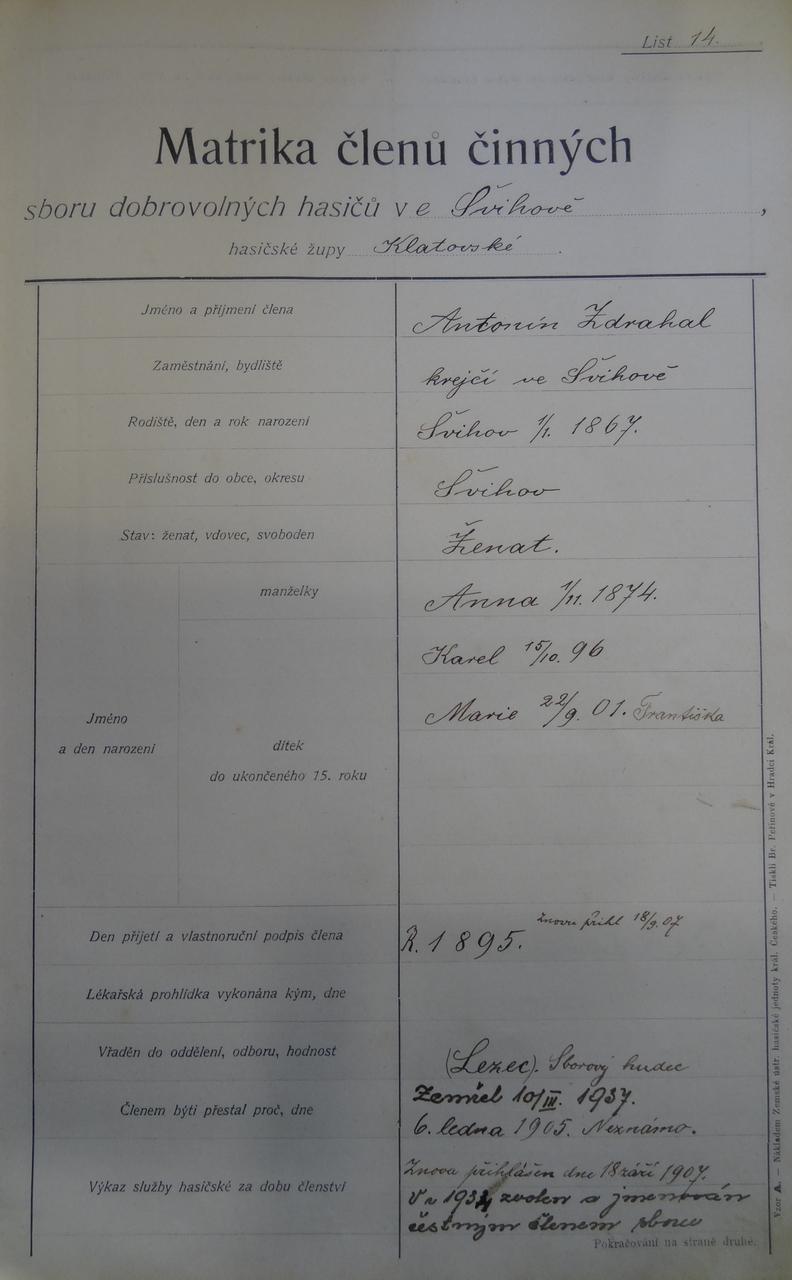 List 14.
Matrika členů činných
sboru dobrovolných hasičů ve Švihově,
hasičské župy Klatovské.
Jméno a příjmení člena Antonín Zdrahal
Zaměstnání, bydliště krejčí ve Švihově
Rodiště, den a rok narození Švihov 1/1. 1867.
Příslušnost do obce, okresu Švihov
Stav: ženat, vdovec, svoboden Ženat.
manželky Anna 1/11. 1874.
Karel 15/10. 96
Marie 22/9. 01. Františka
Jméno
a den narození
dítek
do ukončeného 15. roku
Den přijetí a vlastnoruční podpis člena R. 1895. znovu přihl 18/9. 07
Lékařská prohlídka vykonána kým, dne
Vřaděn do oddělení, odboru, hodnost (Lezec). Sborový hudec
Zemřel 10/III. 1937.
Členem býti přestal proč, dne 6. ledna 1905. Neznámo.
Znova přihlášen dne 18 září 1907.
Výkaz služby hasičské za dobu členství V r 1934 zvolen a jmenován
čestným členem sboru
Pokračování na straně druhé.
Vzor A. — Nákladem Zemské ústř. hasičské jednoty král. Českého. — Tiskli Br. Peřinové v Hradci Král.